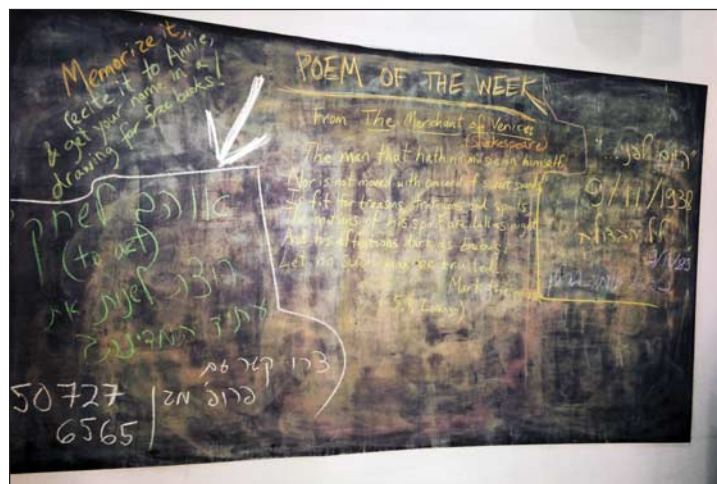 Memorize it,
recite it to Annie,
& get your name in a
drawing for free books!
POEM OF THE WEEK
From The Merchant of Venice
(Shakespeare)
The man that hath no music in himself,
Nor is not moved with concord of sweet sounds,
Is fit for treasons, stratagems and spoils;
motions of his spirit are dull as night
And his affections dark as Erebus:
Let no such man be trusted.
Mark the
"היום לפני..."
9/11/1938
ליל הבדולח
לשחק
(to act)
רוצה לשנות את
עתיד המדינה?
צרו קשר עם
פרופ'
50727
6565